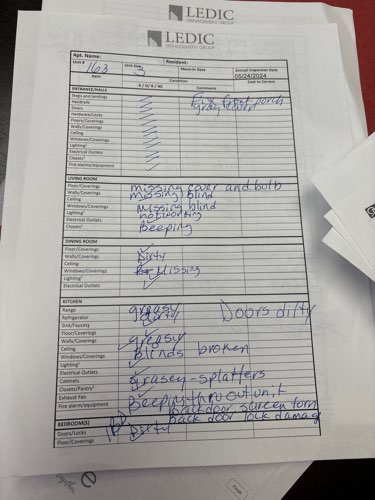 LEDIC
MANAGEMENT GROUP
LEDIC
MANAGEMENT GROUP
Apt. Name: Resident:
Unit # 163 Unit Size 3 Move-in Date Annual Inspection Date
05/24/2024
Item Condition Cost to Correct
A / D / R / NC Comments
ENTRANCE/HALLS Fix front porch
Steps and landings
Handrails
Doors
Hardware/Locks
Floor/Coverings
Walls/Coverings
Ceiling
Windows/Coverings
Lighting
Electrical Outlets
Closets
Fire alarms/equipment
LIVING ROOM
Floor/Coverings missing cover and bulb
Walls/Coverings missing blind
Ceiling
Windows/Coverings Missing blind
Lighting not working
Electrical Outlets
Closets Beeping
DINING ROOM
Floor/Coverings
Walls/Coverings Dirty
Ceiling
Windows/Coverings Missing
Lighting
Electrical Outlets
KITCHEN
Range greasy Doors dirty
Refrigerator dirty
Sink/Faucets
Floor/Coverings
Walls/Coverings greasy
Ceiling
Windows/Coverings Blinds broken
Lighting
Electrical Outlets
Cabinets Greasey-splatters
Closets/Pantry
Exhaust Fan
Fire alarm/equipment Beeping thru out unit
Back door screen torn
BEDROOM(S) Back door lock damag
Doors/Locks Dirty
Floor/Coverings